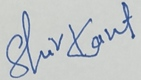 Shiv Kant